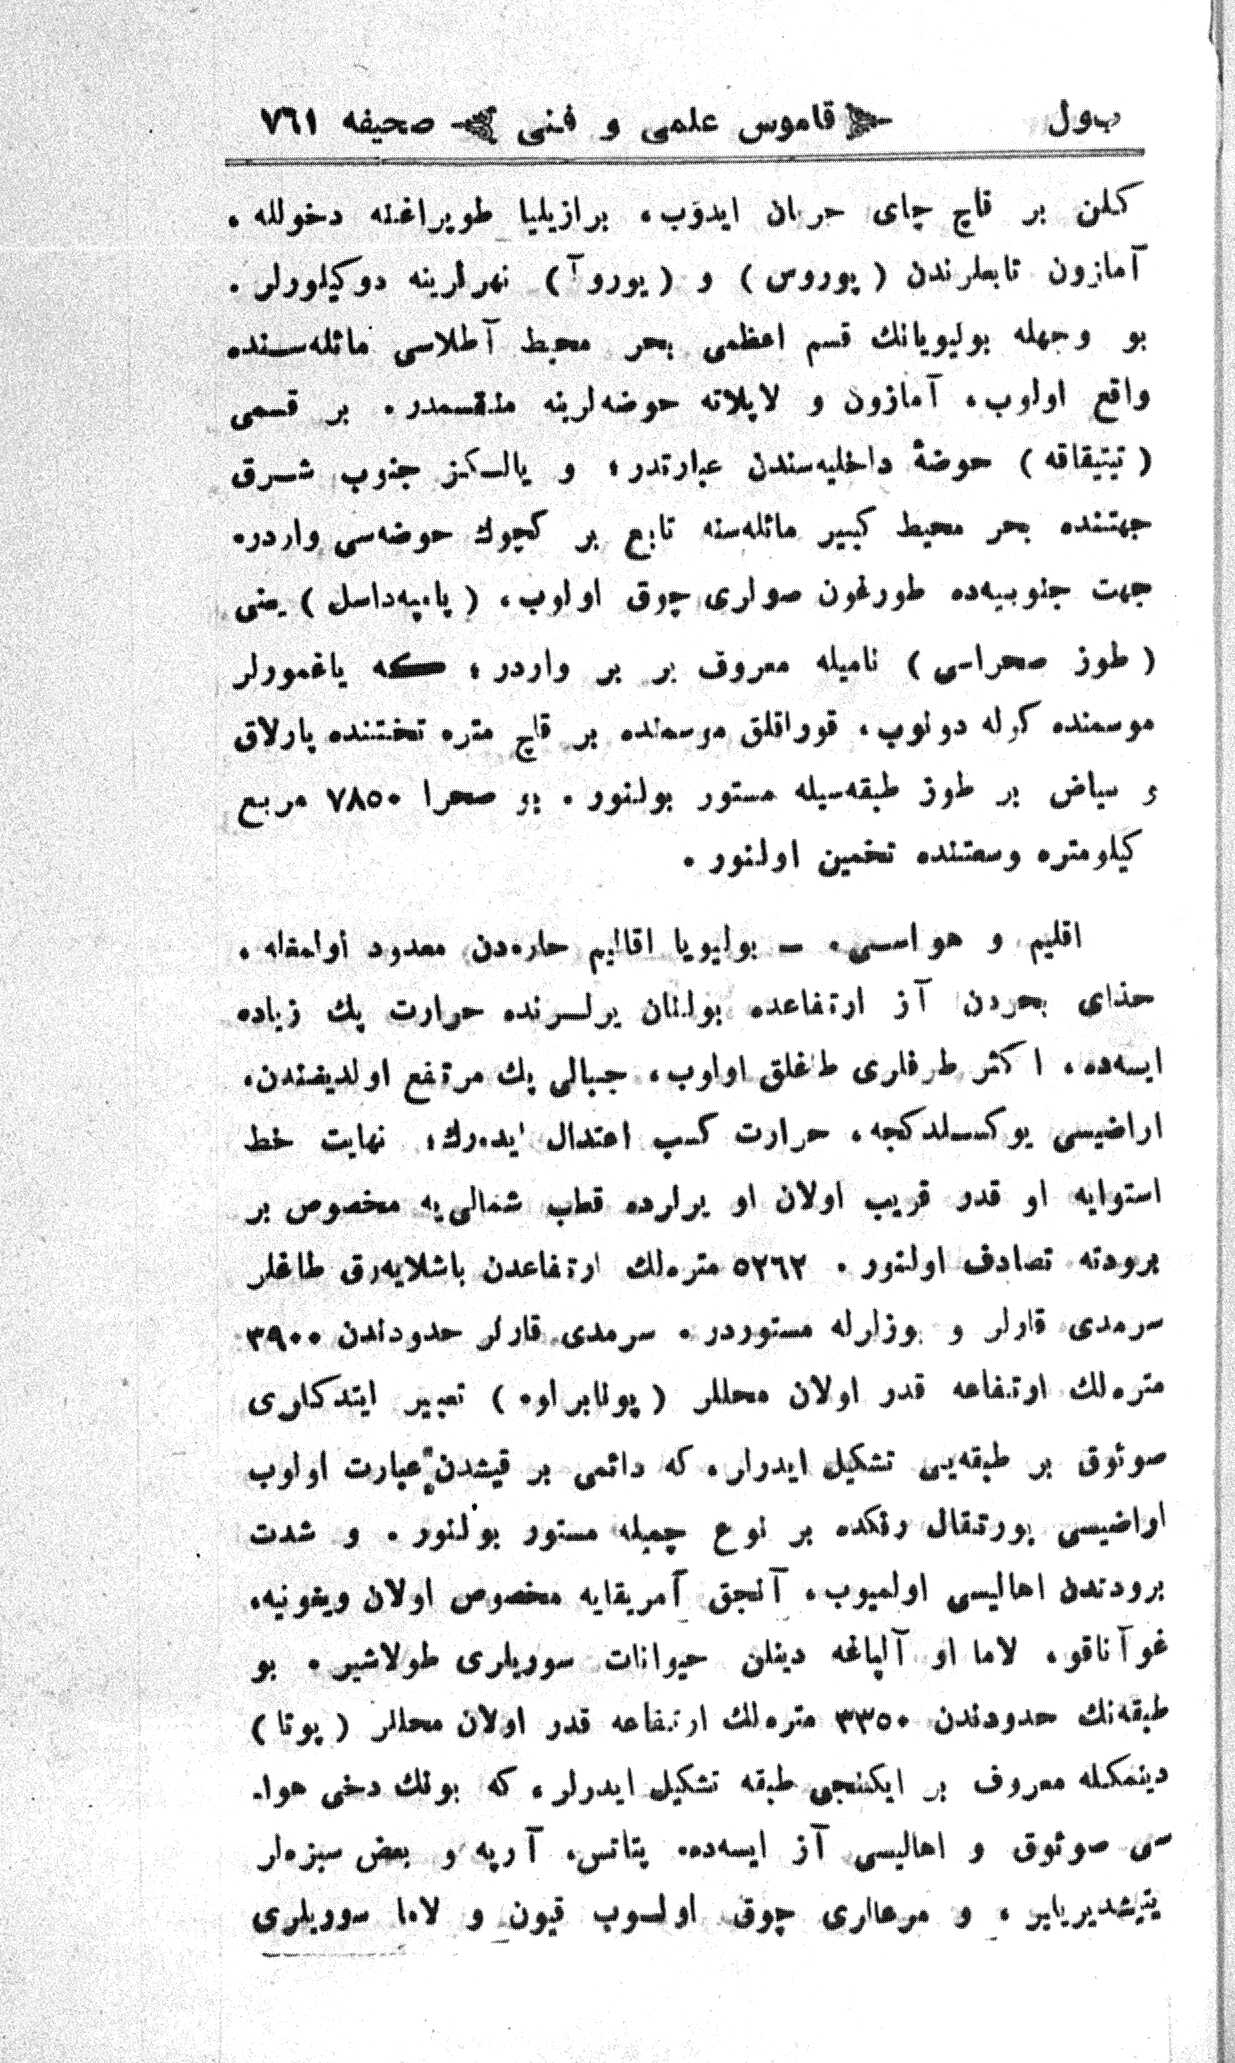 بول ﴿ قاموس علمی و فنی ﴾ صحیفه ٧٦١
كلن بر قاچ چای جریان ایدوب، برازیلیا طوپراغنه دخولله،
آمازون تابعلرندن (پوروس) و (یوروآ) نهرلرینه دوكیلورلر.
بو وجهله بولیویانك قسم اعظمی بحر محیط آطلاسی مائله‌سنده
واقع اولوب، آمازون و لاپلاته حوضه‌لرینه منقسمدر. بر قسمی
(تیتیقاقه) حوضهٔ داخلیه‌سندن عبارتدر؛ و یالكز جنوب شرق
جهتنده بحر محیط كبیر مائله‌سنه تابع بر كچوك حوضه‌سی واردر.
جهت جنوبیه‌ده طورغون صولری چوق اولوب، (پامپه‌داسل) یعنی
(طوز صحراسی) نامیله معروف بر یر واردر؛ كه یاغمورلر
موسمنده كوله دونوب، قوراقلق موسمنده بر قاچ متره تختنده پارلاق
و بیاض بر طوز طبقه‌سیله مستور بولنور. بو صحرا ٧٨٥٠ مربع
كیلومتره وسعتنده تخمین اولنور.
اقلیم و هواسی. ــ بولیویا اقالیم حاره‌دن معدود اولمغله،
حذای بحردن آز ارتفاعده بولنان یرلرنده حرارت پك زیاده
ایسه‌ده، اكثر طرفلری طاغلق اولوب، جبالی پك مرتفع اولدیغندن،
اراضیسی یوكسلدكجه، حرارت كسب اعتدال ایده‌رك؛ نهایت خط
استوایه او قدر قریب اولان او یرلرده قطب شمالی‌یه مخصوص بر
برودته تصادف اولنور. ٥٢٦٢ متره‌لك ارتفاعدن باشلایه‌رق طاغلر
سرمدی قارلر و بوزلرله مستوردر. سرمدی قارلر حدودندن ٣٩٠٠
متره‌لك ارتفاعه قدر اولان محللر (پونابراوه) تعبیر ایتدكلری
صوئوق بر طبقه‌یی تشكیل ایدرلر، كه دائمی بر قیشدن عبارت اولوب
اراضیسی پورتقال رنكده بر نوع چمنله مستور بولنور. و شدت
برودتدن اهالیسی اولمیوب، آنجق آمریقایه مخصوص اولان ویغونیه،
غوآناقو، لاما او آلپاغه دینلن حیوانات سوریلری طولاشیر. بو
طبقه‌نك حدودندن ٣٣٥٠ متره‌لك ارتفاعه قدر اولان محللر (پونا)
دینمكله معروف بر ایكنجی طبقه تشكیل ایدرلر، كه بونك دخی هوا-
سی صوئوق و اهالیسی آز ایسه‌ده، پتاتس، آرپه و بعض سبزه‌لر
یتیشدیریلیر، و مرعالری چوق اولوب قیون و لاما سوریلری